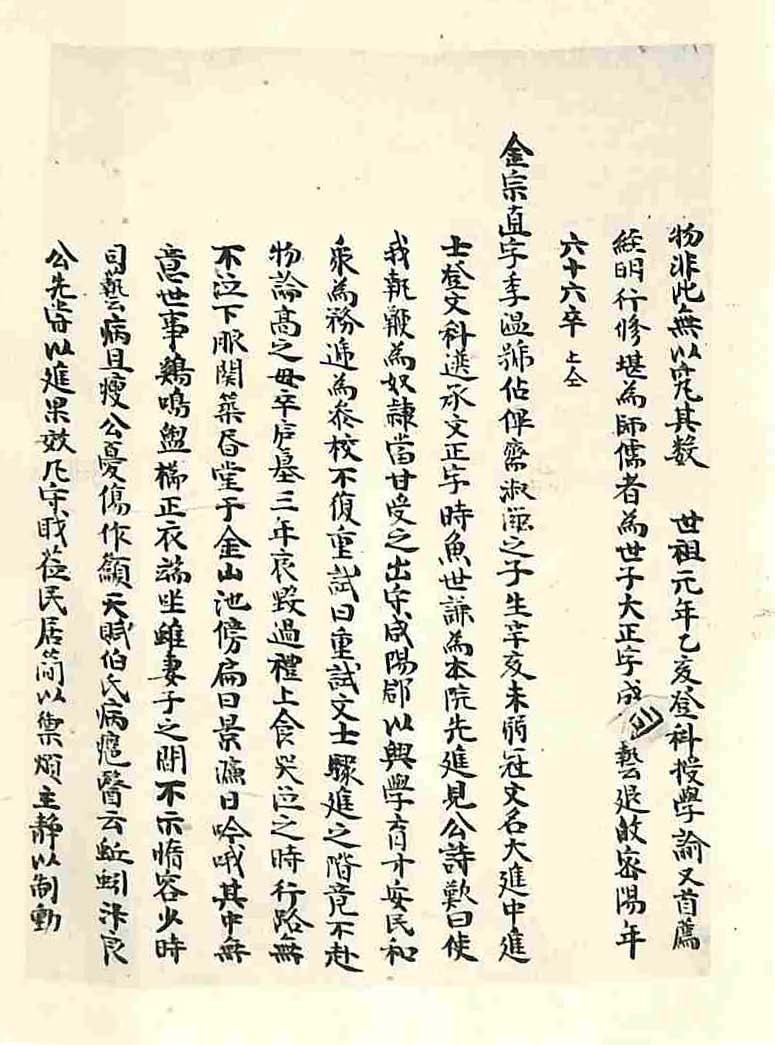 物非此無以究其数　世祖元年乙亥登科授學諭又首薦
經明行修堪為師儒者為世子大正字成藝退故密陽年
六十六卒 上仝
金宗直字季溫號佔俾齋淑滋之子生辛亥未弱冠文名大進中進
士登文科選承文正字時魚世謙為本院先進見公詩歎曰使
我執鞭為奴隷當甘受之出守咸陽郡以興學育才安民和
衆為務遞為叅校不復重試曰重試文士驟進之階竟不赴
物論高之母卒庐墓三年哀毀過禮上食哭泣之時行路無
不泣下服闋築書堂于金山池傍扁曰景濂日吟哦其中無
意世事鷄鳴盥櫛正衣端坐雖妻子之間不示惰容少時
司藝病且瘦公憂傷作籲天賦伯氏病瘇醫云蚯蚓汁良
公先嘗以進果效凡守戝莅民居簡以禦煩主静以制動